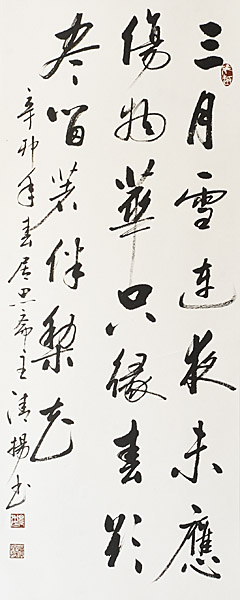 三月雪連夜未應
傷物華只緣春欲
盡留著伴梨花
辛卯年春居思齋主清揚書